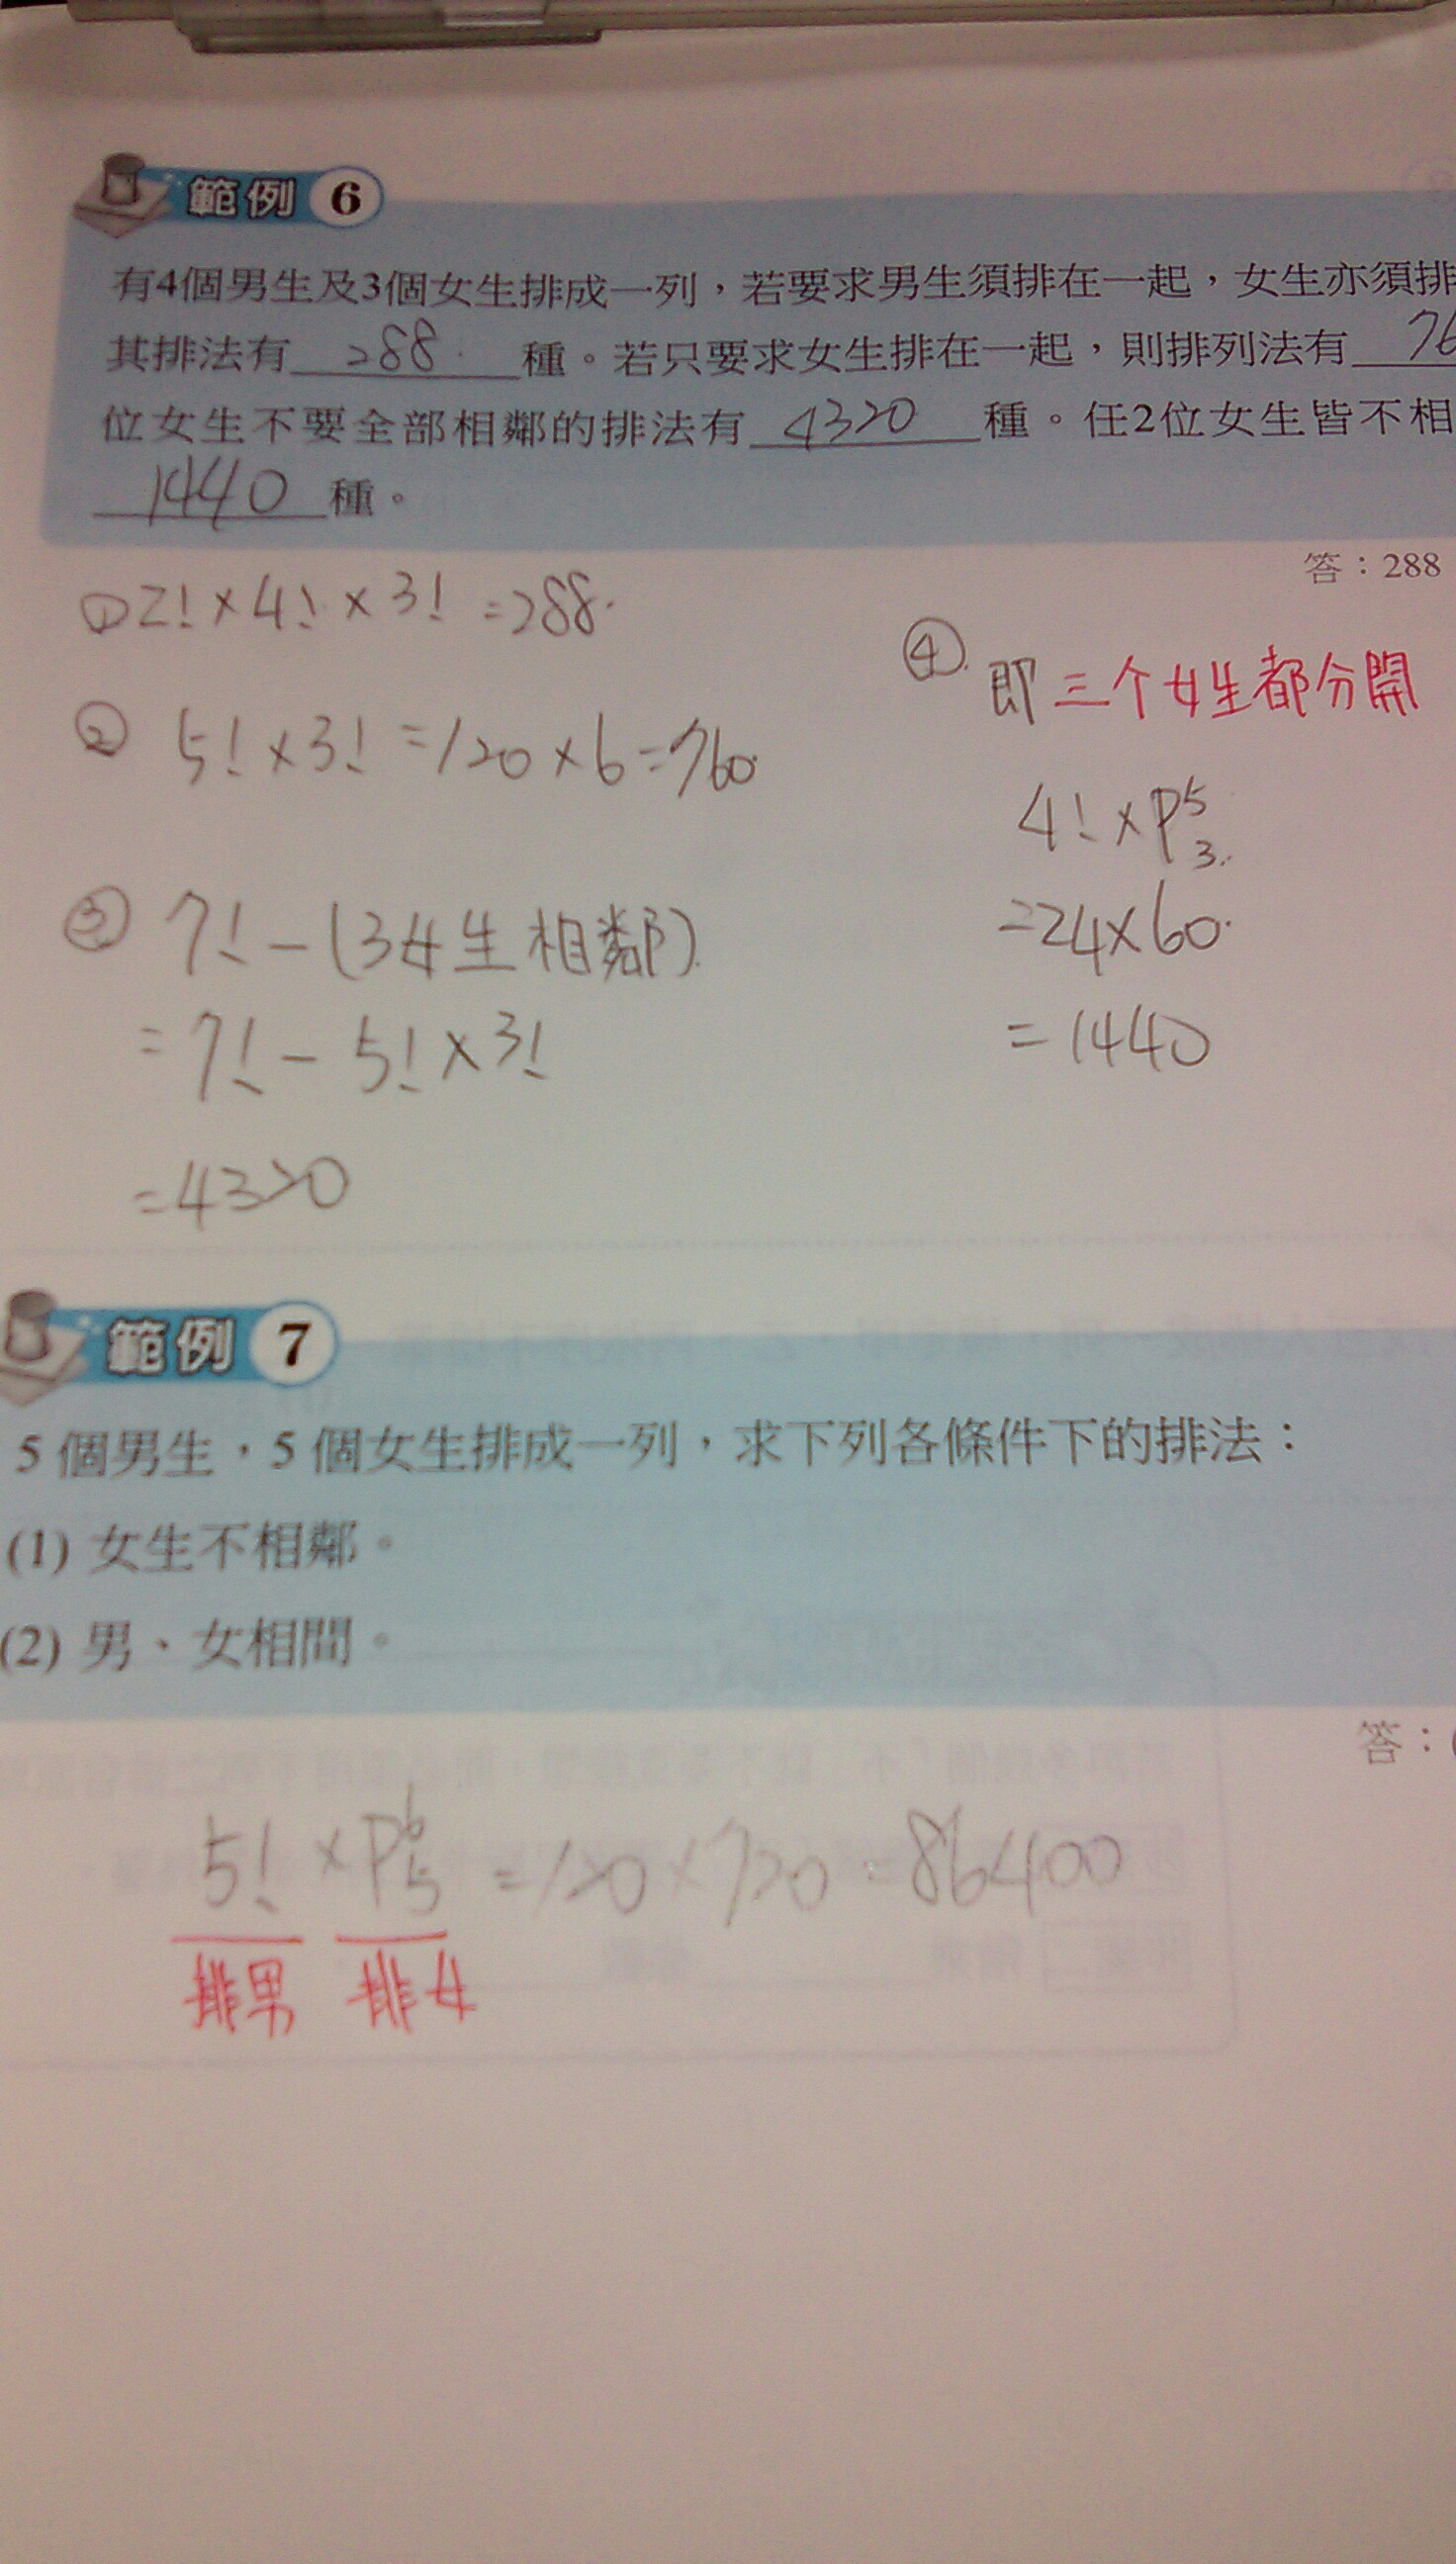 範例 6
有4個男生及3個女生排成一列，若要求男生須排在一起，女生亦須排
其排法有 288 種。若只要求女生排在一起，則排列法有 76
位女生不要全部相鄰的排法有 4320 種。任2位女生皆不相
1440 種。
答：288
① 2! × 4! × 3! = 288
② 5! × 3! = 120 × 6 = 760
③ 7! - (3女生相鄰)
= 7! - 5! × 3!
= 4320
④ 即三个女生都分開
4! × P⁵₃
= 24 × 60
= 1440
範例 7
5 個男生，5 個女生排成一列，求下列各條件下的排法：
(1) 女生不相鄰。
(2) 男、女相間。
答：(
5! × P⁶₅ = 120 × 720 = 86400
排男 排女